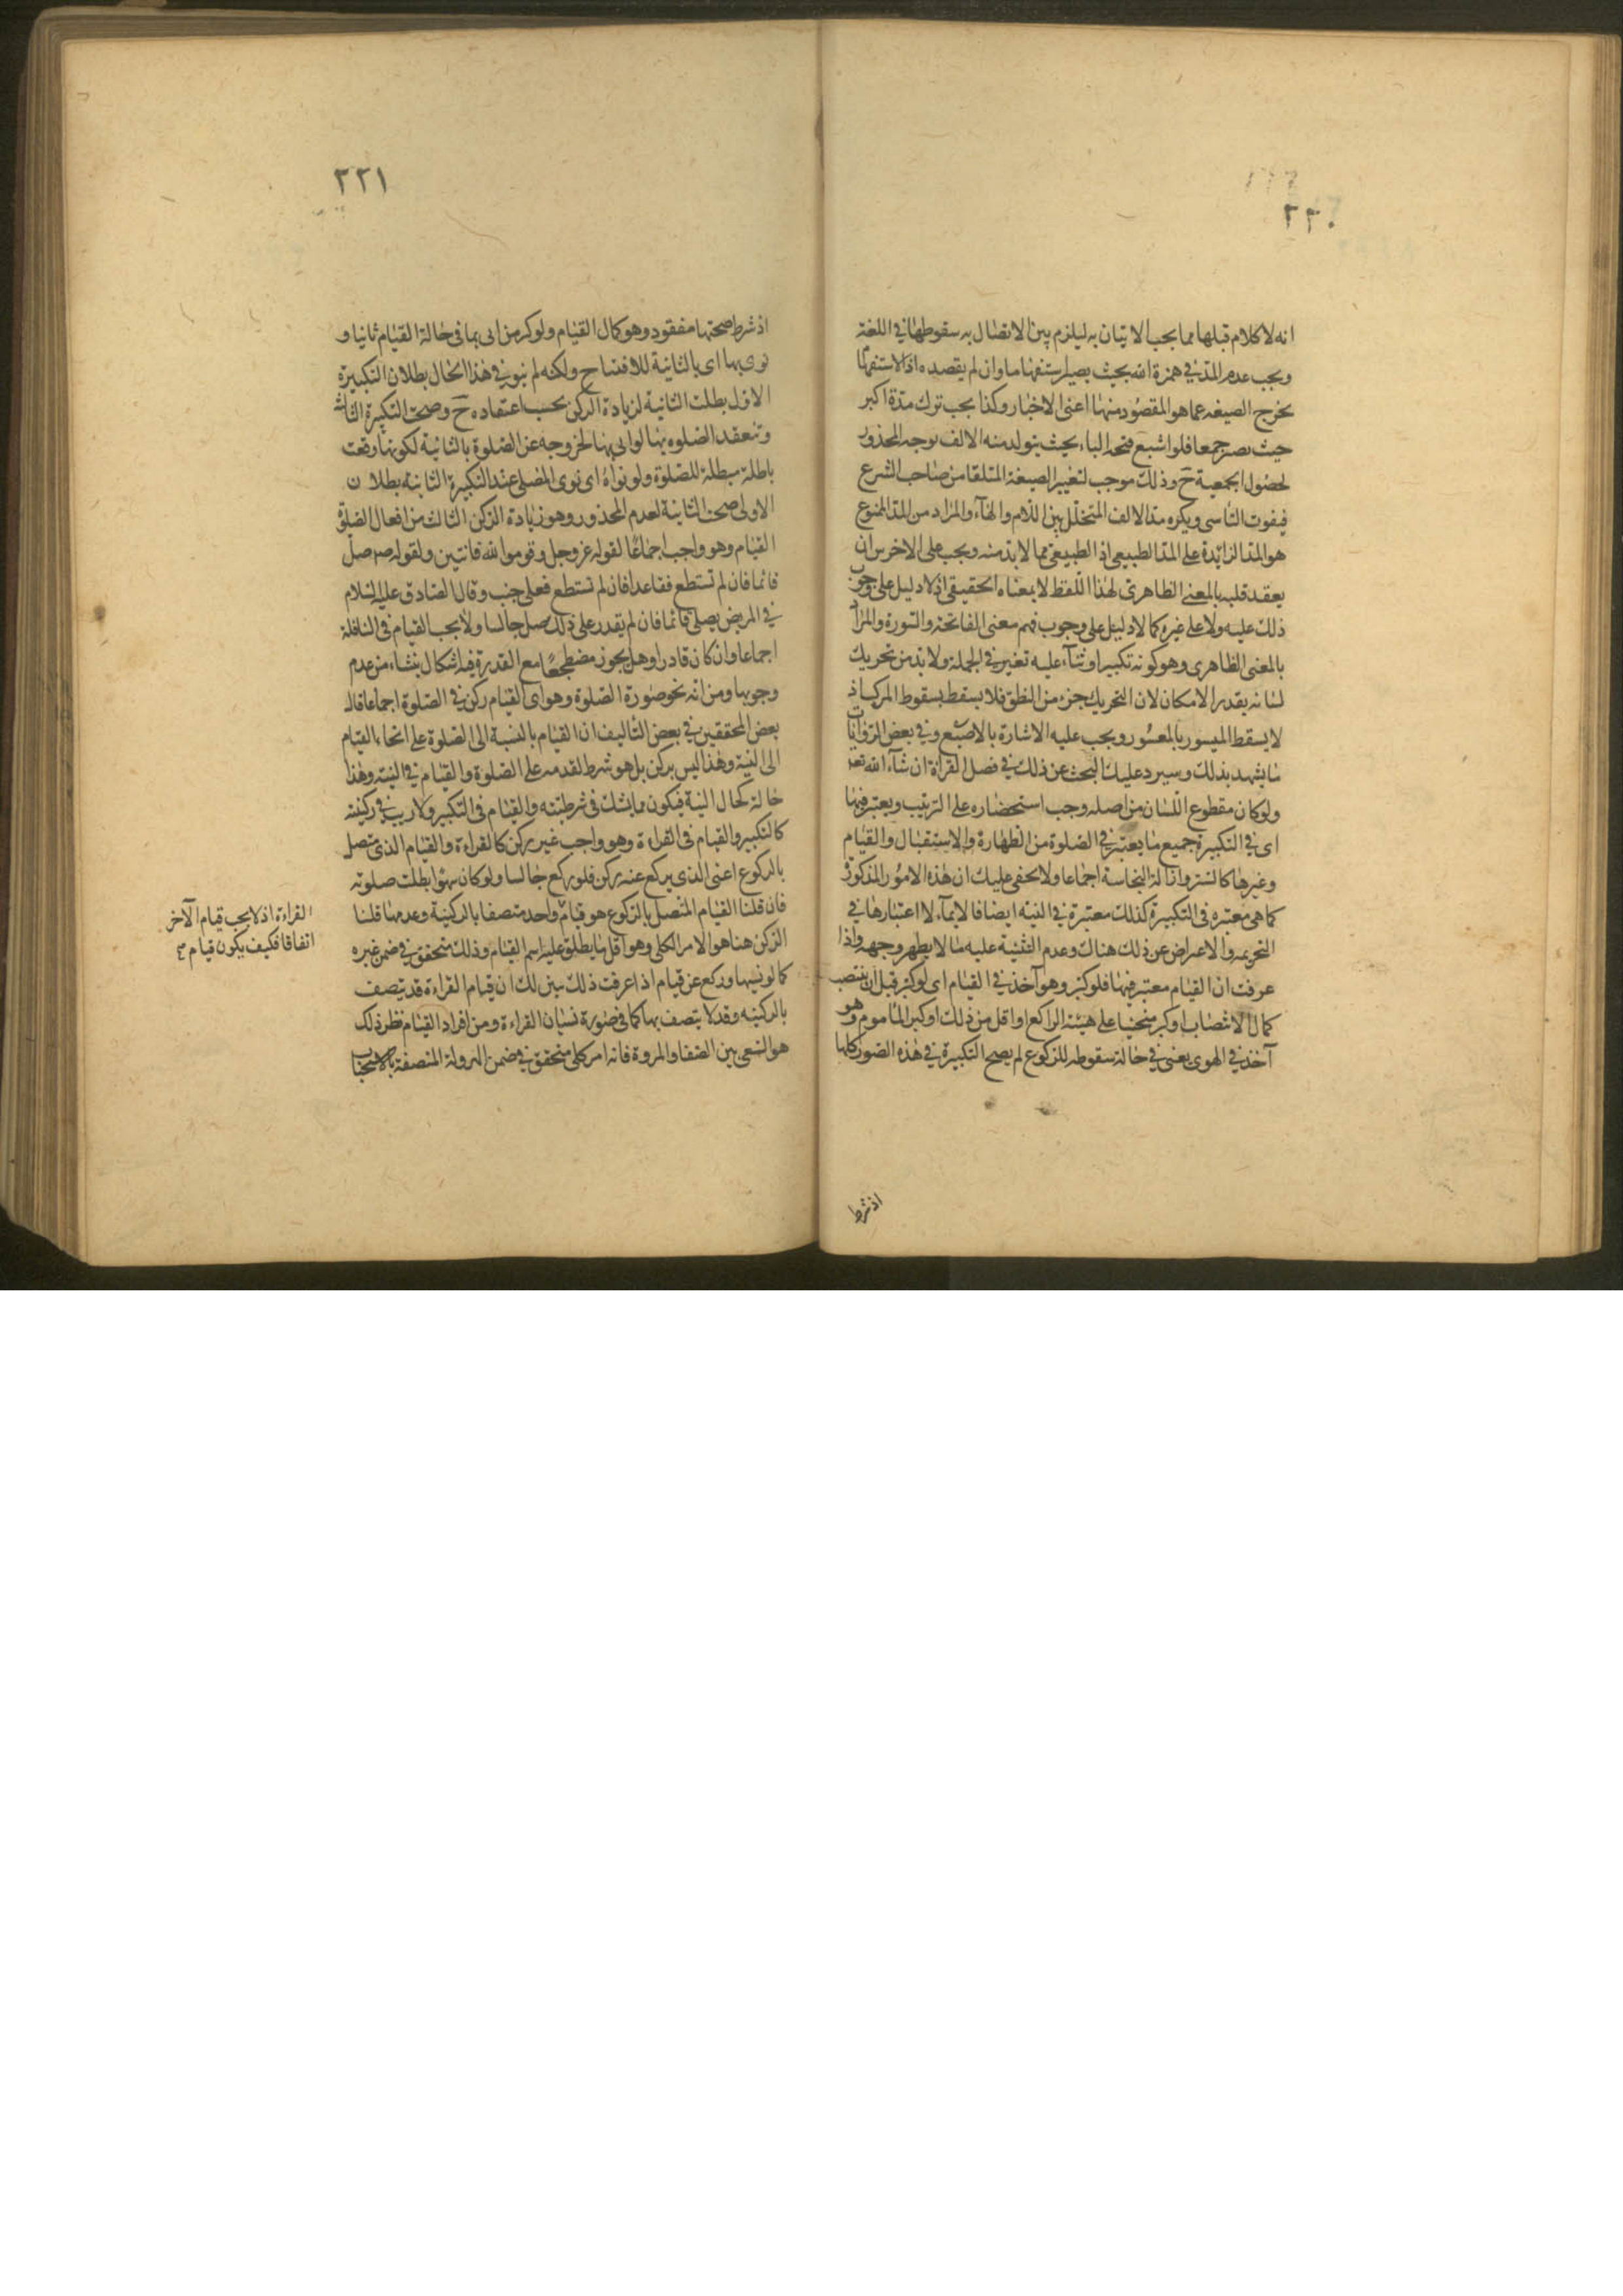 ٢٢٠
انه لا كلام قبلها مما يجب الاتيان به ليلزم بين الاتصال به سقوطها في اللغة
ويجب عدم المد في همزة الله بحيث يصير ستفهاما وان لم يقصده اذ الاستفها
يخرج الصيغه عما هو المقصود منها اعنى الاخبار وكذا يجب ترك مدة اكبر
حيث يصير جمعا فلو اشبع فتحه الباء بحيث يتولد منه الالف توجه المحذور
لحصول الجمعية ح وذلك موجب لتغيير الصيغة المتلقا من صاحب الشرع
فيفوت التاسى ويكره مد الالف المتخلل بين اللام والهاء والمراد من المد الممنوع
هو المد الزايدة على المد الطبيعى اذ الطبيعى مما لا بد منه ويجب على الاخرس ان
يعقد قلبه بالمعنى الظاهرى لهذا اللفظ لا بمعناه الحقيقى اذ لا دليل على وجوب
ذلك عليه ولا على غيره كما لا دليل على وجوب فهم معنى الفاتحة والسورة والمراد
بالمعنى الظاهرى وهو كونه تكبيرا وثناء عليه تغير في الجملة ولا بد من تحريك
لسانه بقدر الامكان لان التحريك جزء من النطق فلا يسقط بسقوط المركب اذ
لا يسقط الميسور بالمعسور ويجب عليه الاشارة بالاصبع وفي بعض الروايات
ما يشهد بذلك وسيرد عليك البحث عن ذلك في فصل القراة ان شاء الله تعه
ولو كان مقطوع اللسان من اصله وجب استحضاره على الترتيب ويعتبر فيها
اى في التكبيرة جميع ما يعتبر في الصلوة من الطهارة والاستقبال والقيام
وغيرها كالستر وازالة النجاسة اجماعا ولا يخفى عليك ان هذه الامور المذكورة
كما هى معتبره فى التكبيرة كذلك معتبرة في النيه ايضا فالايماء لا اعتبارها في
التحريمه والاعراض عن ذلك هناك وعدم التثنية عليه ما لا يظهر وجهه واذا
عرفت ان القيام معتبر فيها فلو كبر وهو آخذ في القيام اى لو كبر قبل ان ينتصب
كمال الانتصاب او كبر منحنيا على هيئة الراكع او اقل من ذلك او كبر الماموم وهو
آخذ في الهوى يعنى في حالة سقوطه للركوع لم يصح التكبيرة في هذه الصور كلها
اذ شرط
٢٢١
اذ شرط صحتها مفقود وهو كمال القيام ولو كبر من اتى بها فى حالة القيام ثانيا و
نوى بها اى بالثانية للافتتاح ولكنه لم ينو في هذا الحال بطلان التكبيرة
الاول بطلت الثانية لزيادة الركن بحسب اعتقاده ح وصحت التكبيرة الثالثة
وتنعقد الصلوه بها لو اتى بها لخروجه عن الصلوة بالثانية لكونها وقعت
باطلة مبطلة للصلوة ولو نواه اى نوى المصلى عند التكبيرة الثانية بطلان
الاولى صحت الثانية لعدم المحذور وهو زيادة الركن الثالث من افعال الصلوة
القيام وهو واجب اجماعا لقوله عز وجل وقوموا لله قانتين ولقوله صم صل
قائما فان لم تستطع فقاعدا فان لم تستطع فعلى جنب وقال الصادق عليه السلام
في المريض يصلى قائما فان لم يقدر على ذلك صلى جالسا ولا يجب القيام فى النافلة
اجماعا وان كان قادرا وهل يجوز مضطجعا مع القدرة فيه اشكال ينشاء من عدم
وجوبها ومن انه نحو صورة الصلوة وهو اى القيام ركن في الصلوة اجماعا قال
بعض المحققين في بعض التاليف ان القيام بالنسبة الى الصلوة على انحاء القيام
الى النية وهذا ليس بركن بل هو شرط لتقدمه على الصلوة والقيام في النية وهذا
حالة كحال النية فيكون مما يشك فى شرطيته والقيام فى التكبير ولا ريب في ركنيته
كالتكبير والقيام فى القراءة وهو واجب غير ركن كالقراءة والقيام الذى متصل
بالركوع اعنى الذى يركع عنه ركن فلو ركع جالسا ولو كان سهوا بطلت صلوته
فان قلنا القيام المتصل بالركوع هو قيام واحد متصفا بالركنية وعدمها قلنا
الركن هنا هو الامر الكلى وهو اقل ما يطلق عليه اسم القيام وذلك متحقق في ضمن غيره
كما لو نسيها وركع عن قيام اذا عرفت ذلك تبين لك ان قيام القراءة قد يتصف
بالركنيه وقد لا يتصف بها كما فى صورة نسيان القراءة ومن افراد القيام نظر ذلك
هو السعى بين الصفا والمروة فانه امر كلى متحقق في ضمن الهرولة المتصفة بالاستحباب
القراءة اذ لا يجب قيام الآخر
اتفاقا فكيف يكون قيام